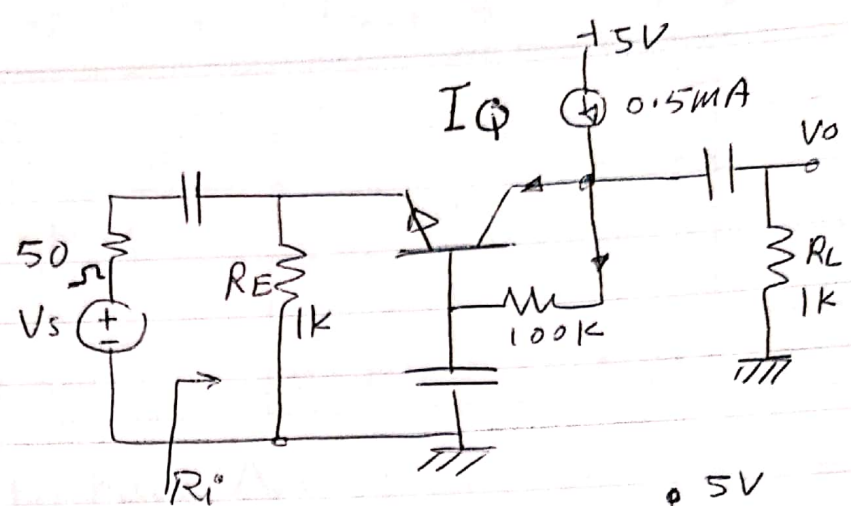 +5V
IQ 0.5mA
Vo
50
Ω
RE
1K
Vs
+
-
100K
RL
1K
Ri
. 5V